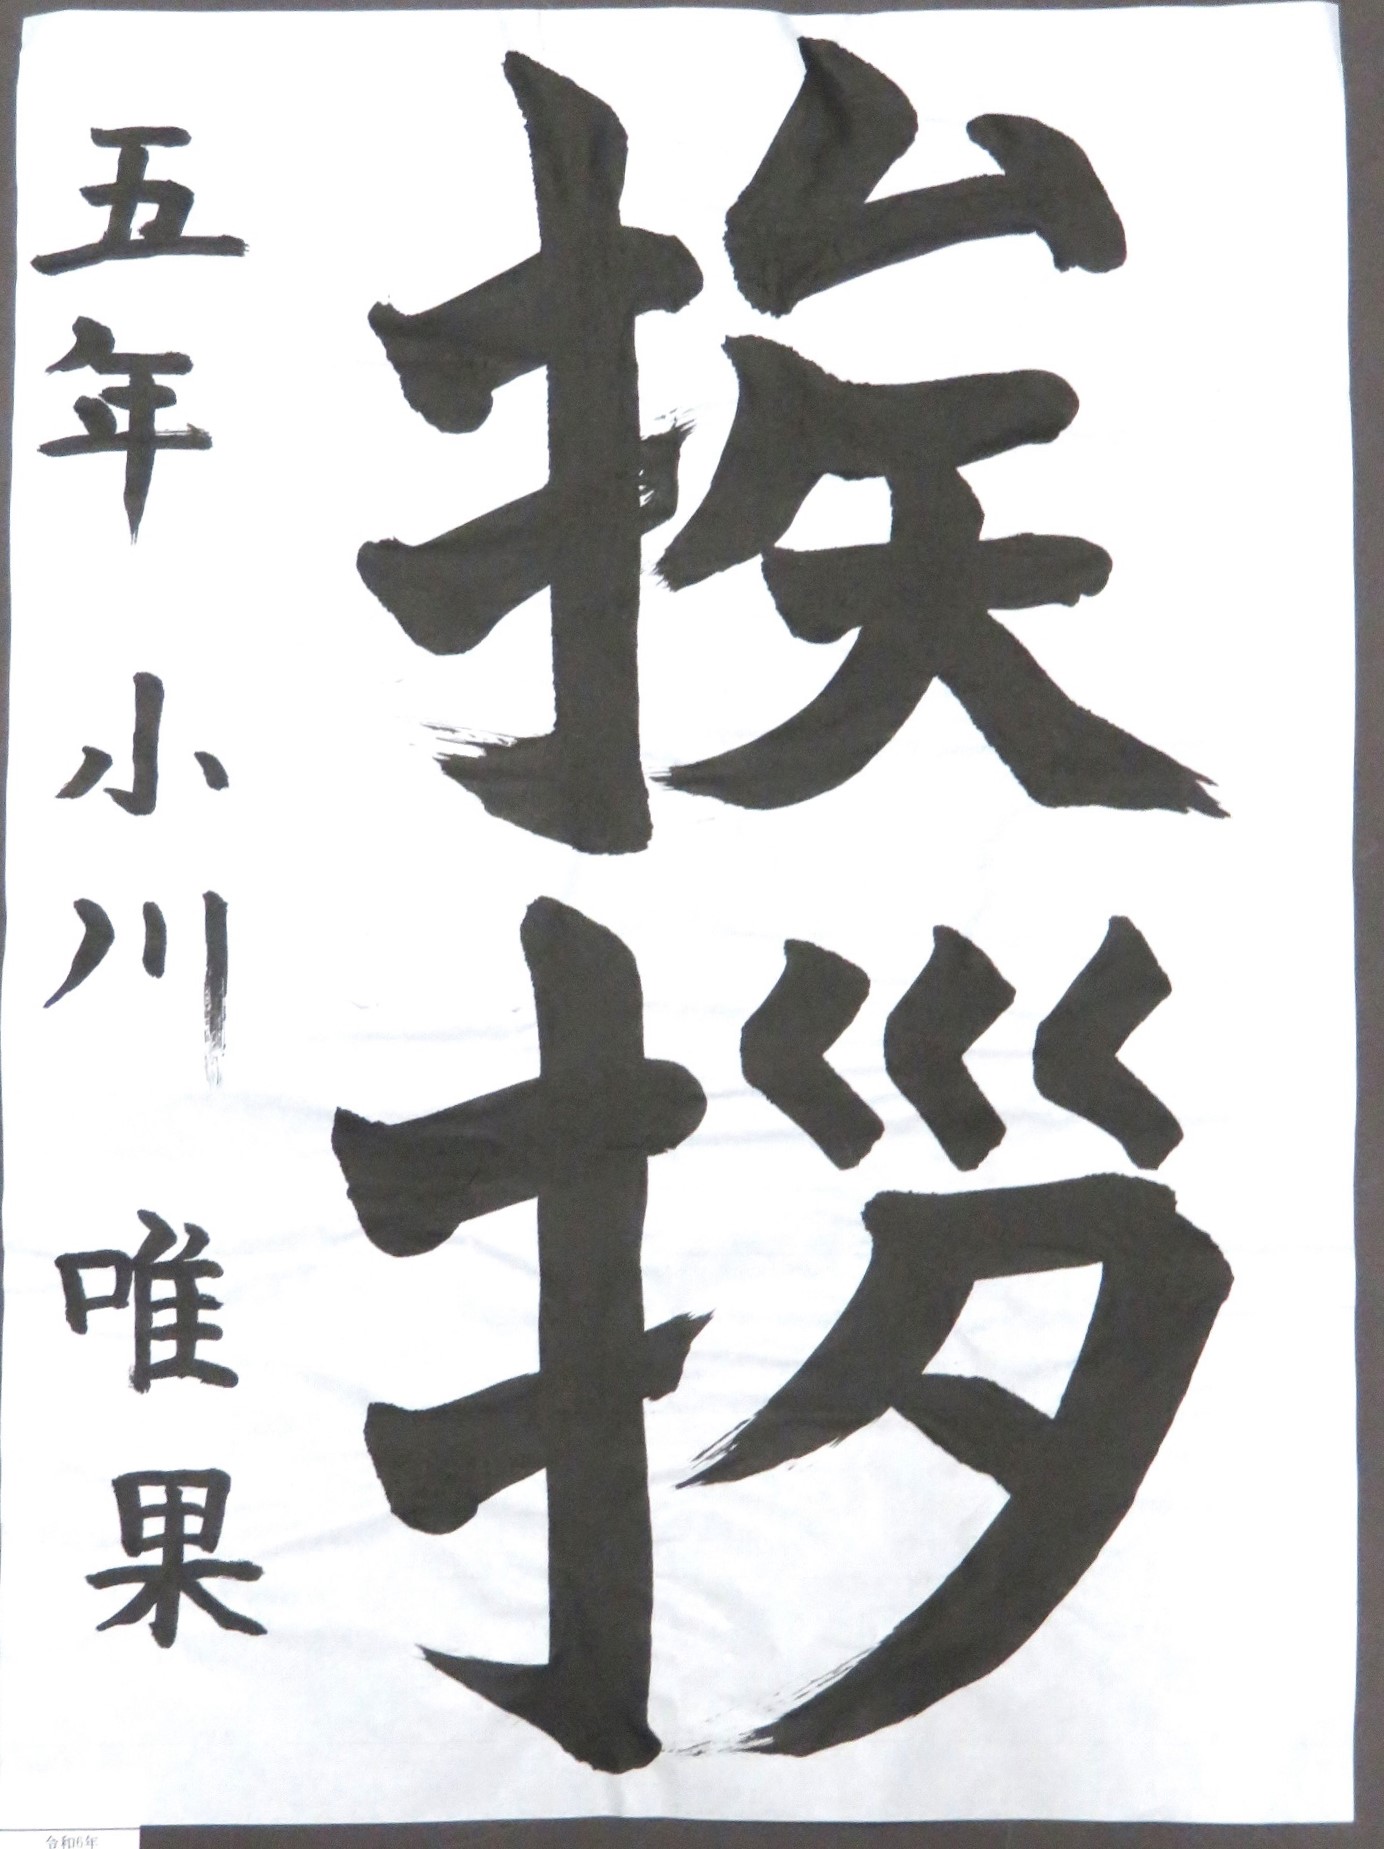 挨拶
五年 小川 唯果
令和6年